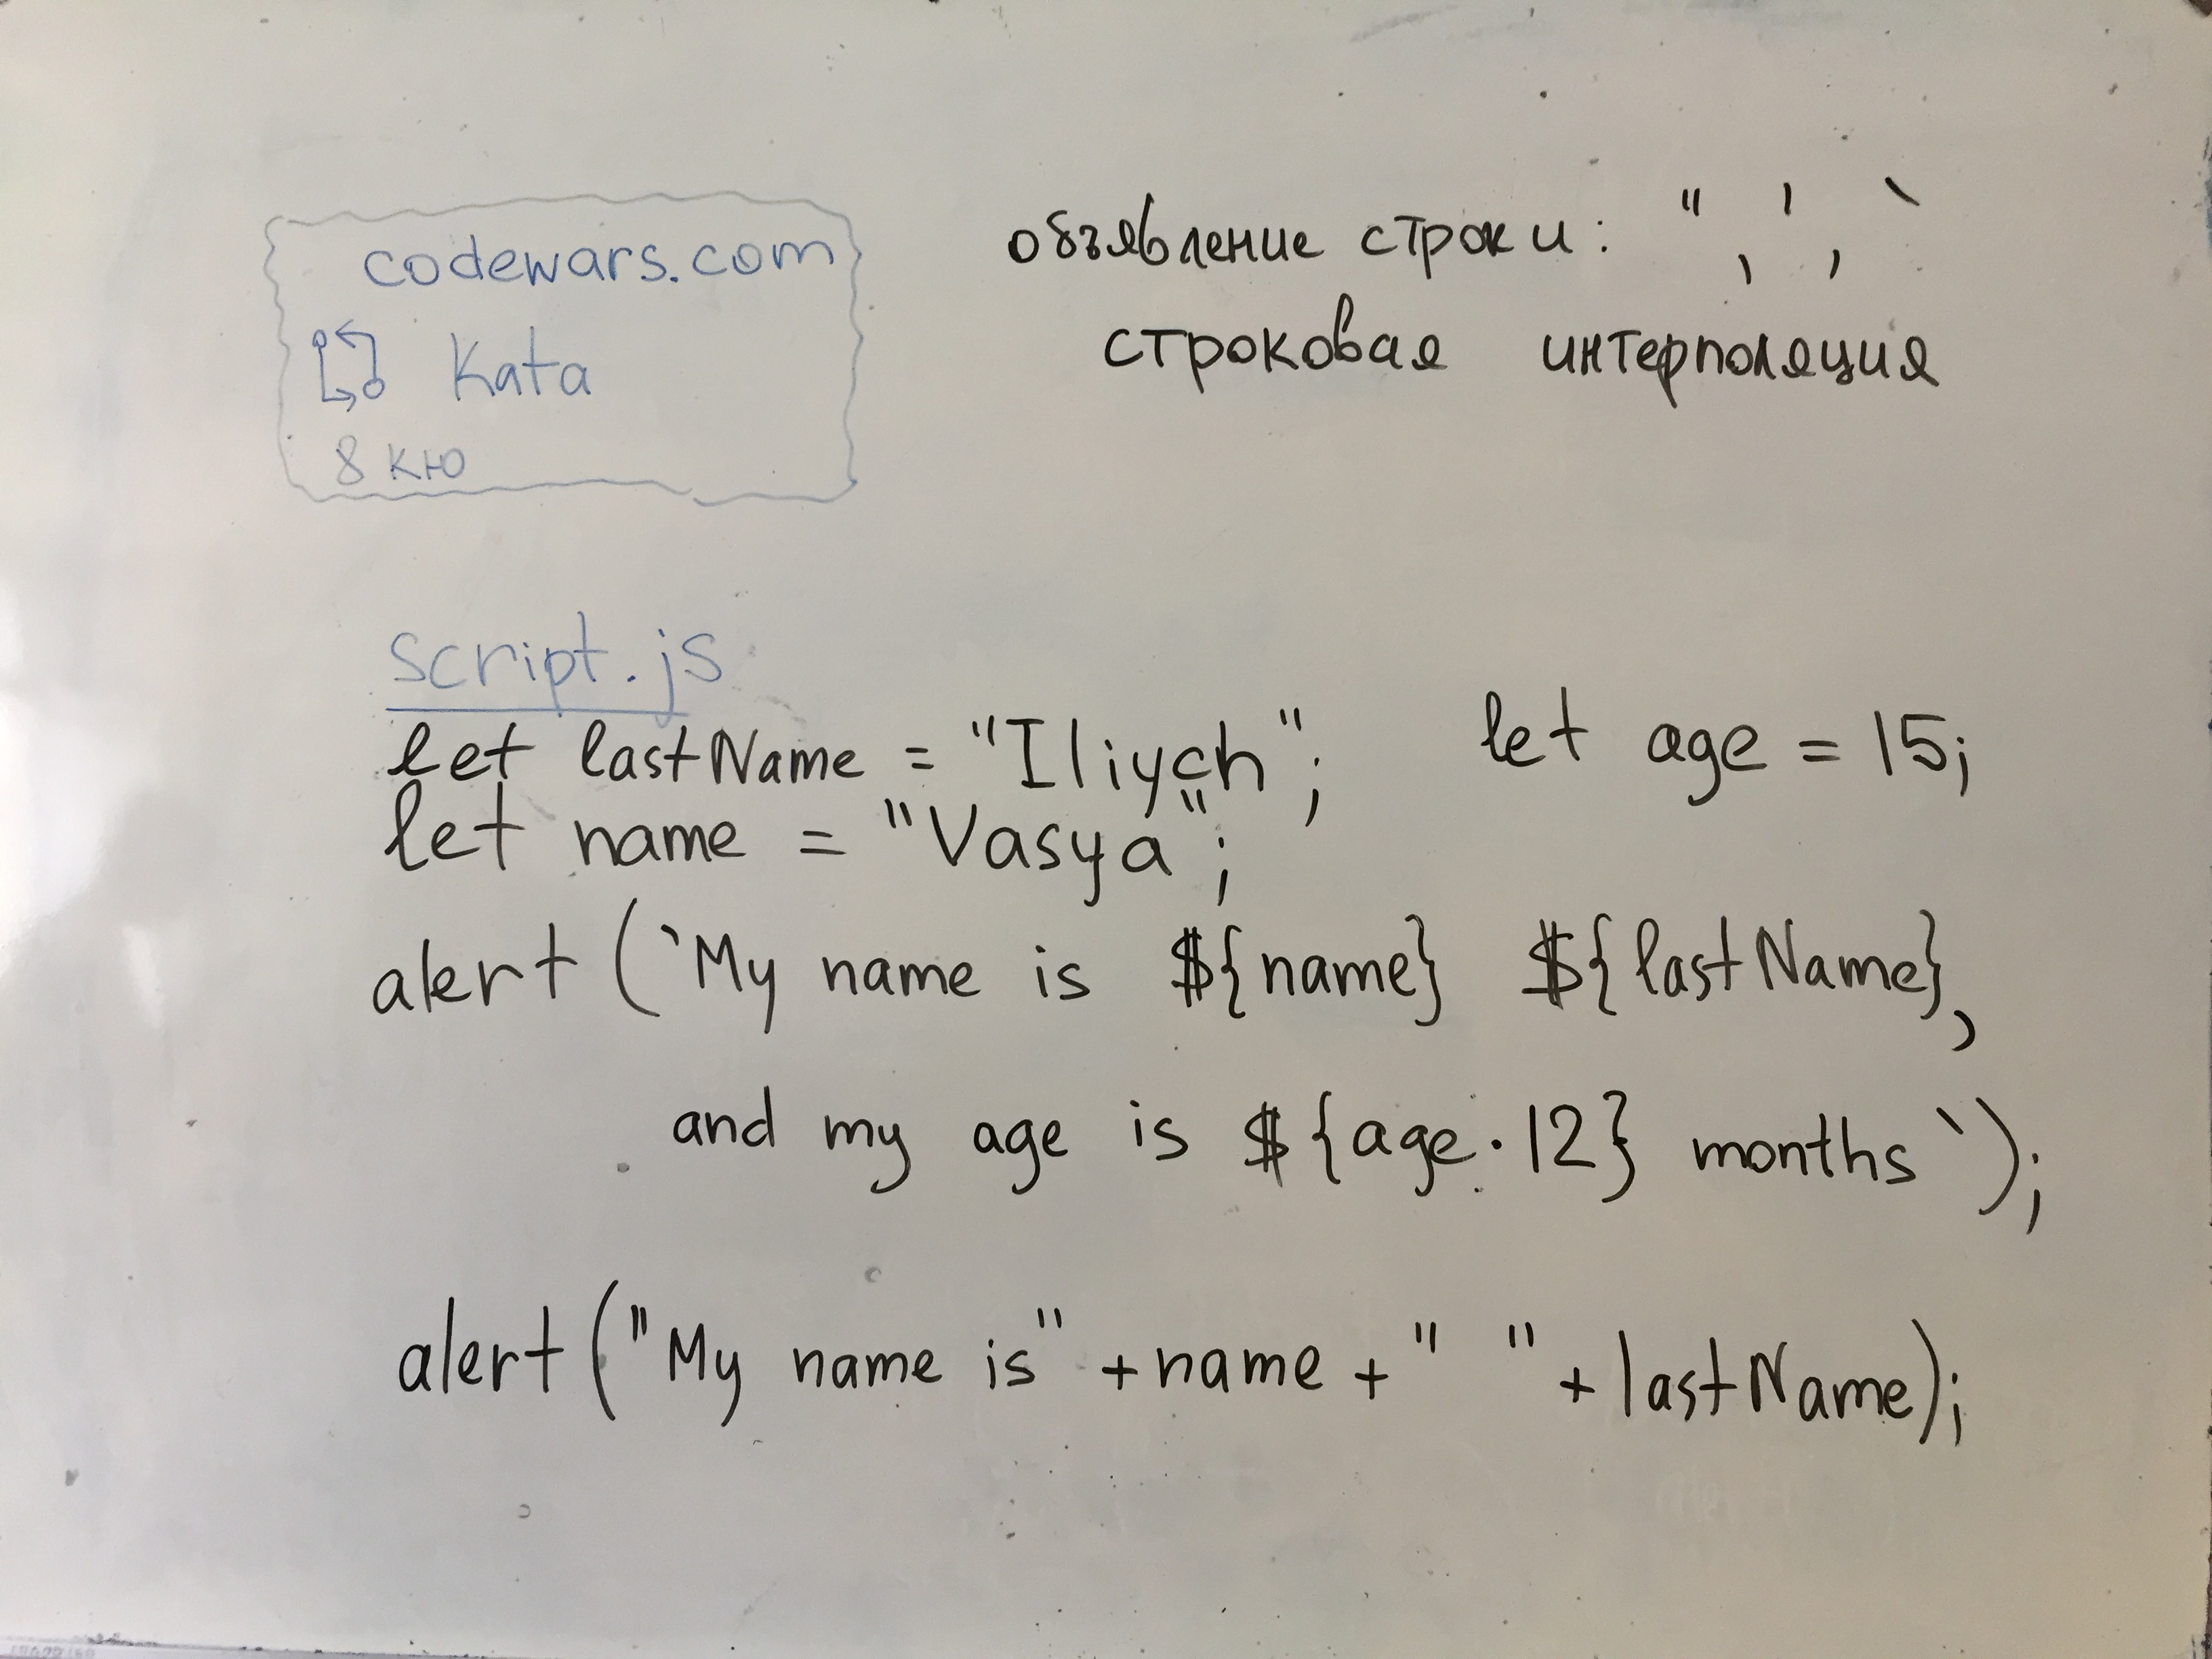 codewars.com
Kata
8 кю
объявление строки: ", ', `
строковая интерполяция
script.js
let lastName = "Iliych"; let age = 15;
let name = "Vasya";
alert (`My name is ${name} ${lastName},
and my age is ${age·12} months`);
alert ("My name is" + name + " " + lastName);